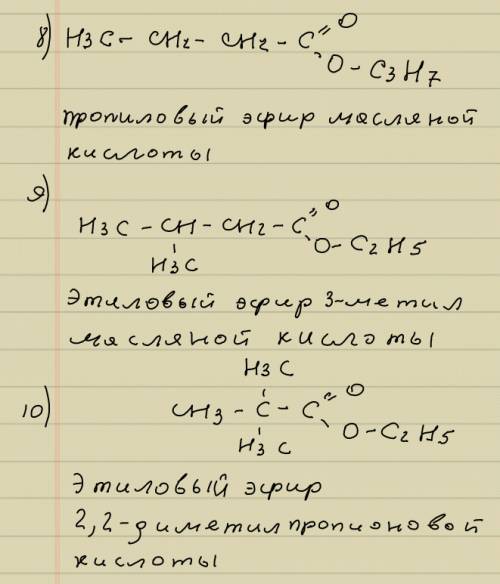 8) H3C - CH2 - CH2 - C = O
O - C3H7
пропиловый эфир масляной
кислоты
9)
H3C - CH - CH2 - C = O
O - C2H5
H3C
Этиловый эфир 3-метил
масляной кислоты
H3C
10) CH3 - C - C = O
O - C2H5
H3C
Этиловый эфир
2,2-диметилпропионовой
кислоты